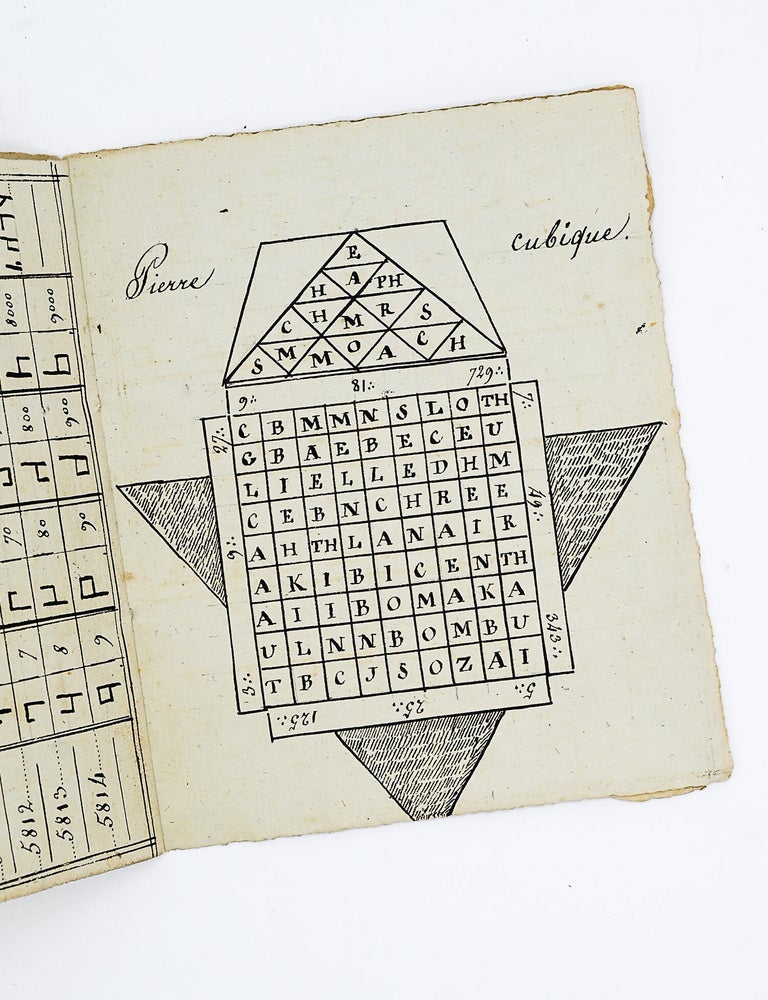 Pierre cubique.
E
H A PH
C H M R S
S M M O A C H
9∴ 81∴ 729∴
C B M M N S L O TH
G B A E B E C E U
L I E L L E D H M
C E B N C H R E E
A H TH L A N A I R
A K I B I C E N TH
A I I B O M A K A
U L N N B O M B U
T B C J S O Z A I
27∴ 9∴ 3∴
7∴ 49∴ 343∴
125∴ 25∴ 5∴
8000 9000
800 900
70 80 90
7 8 9
5812 5813 5814